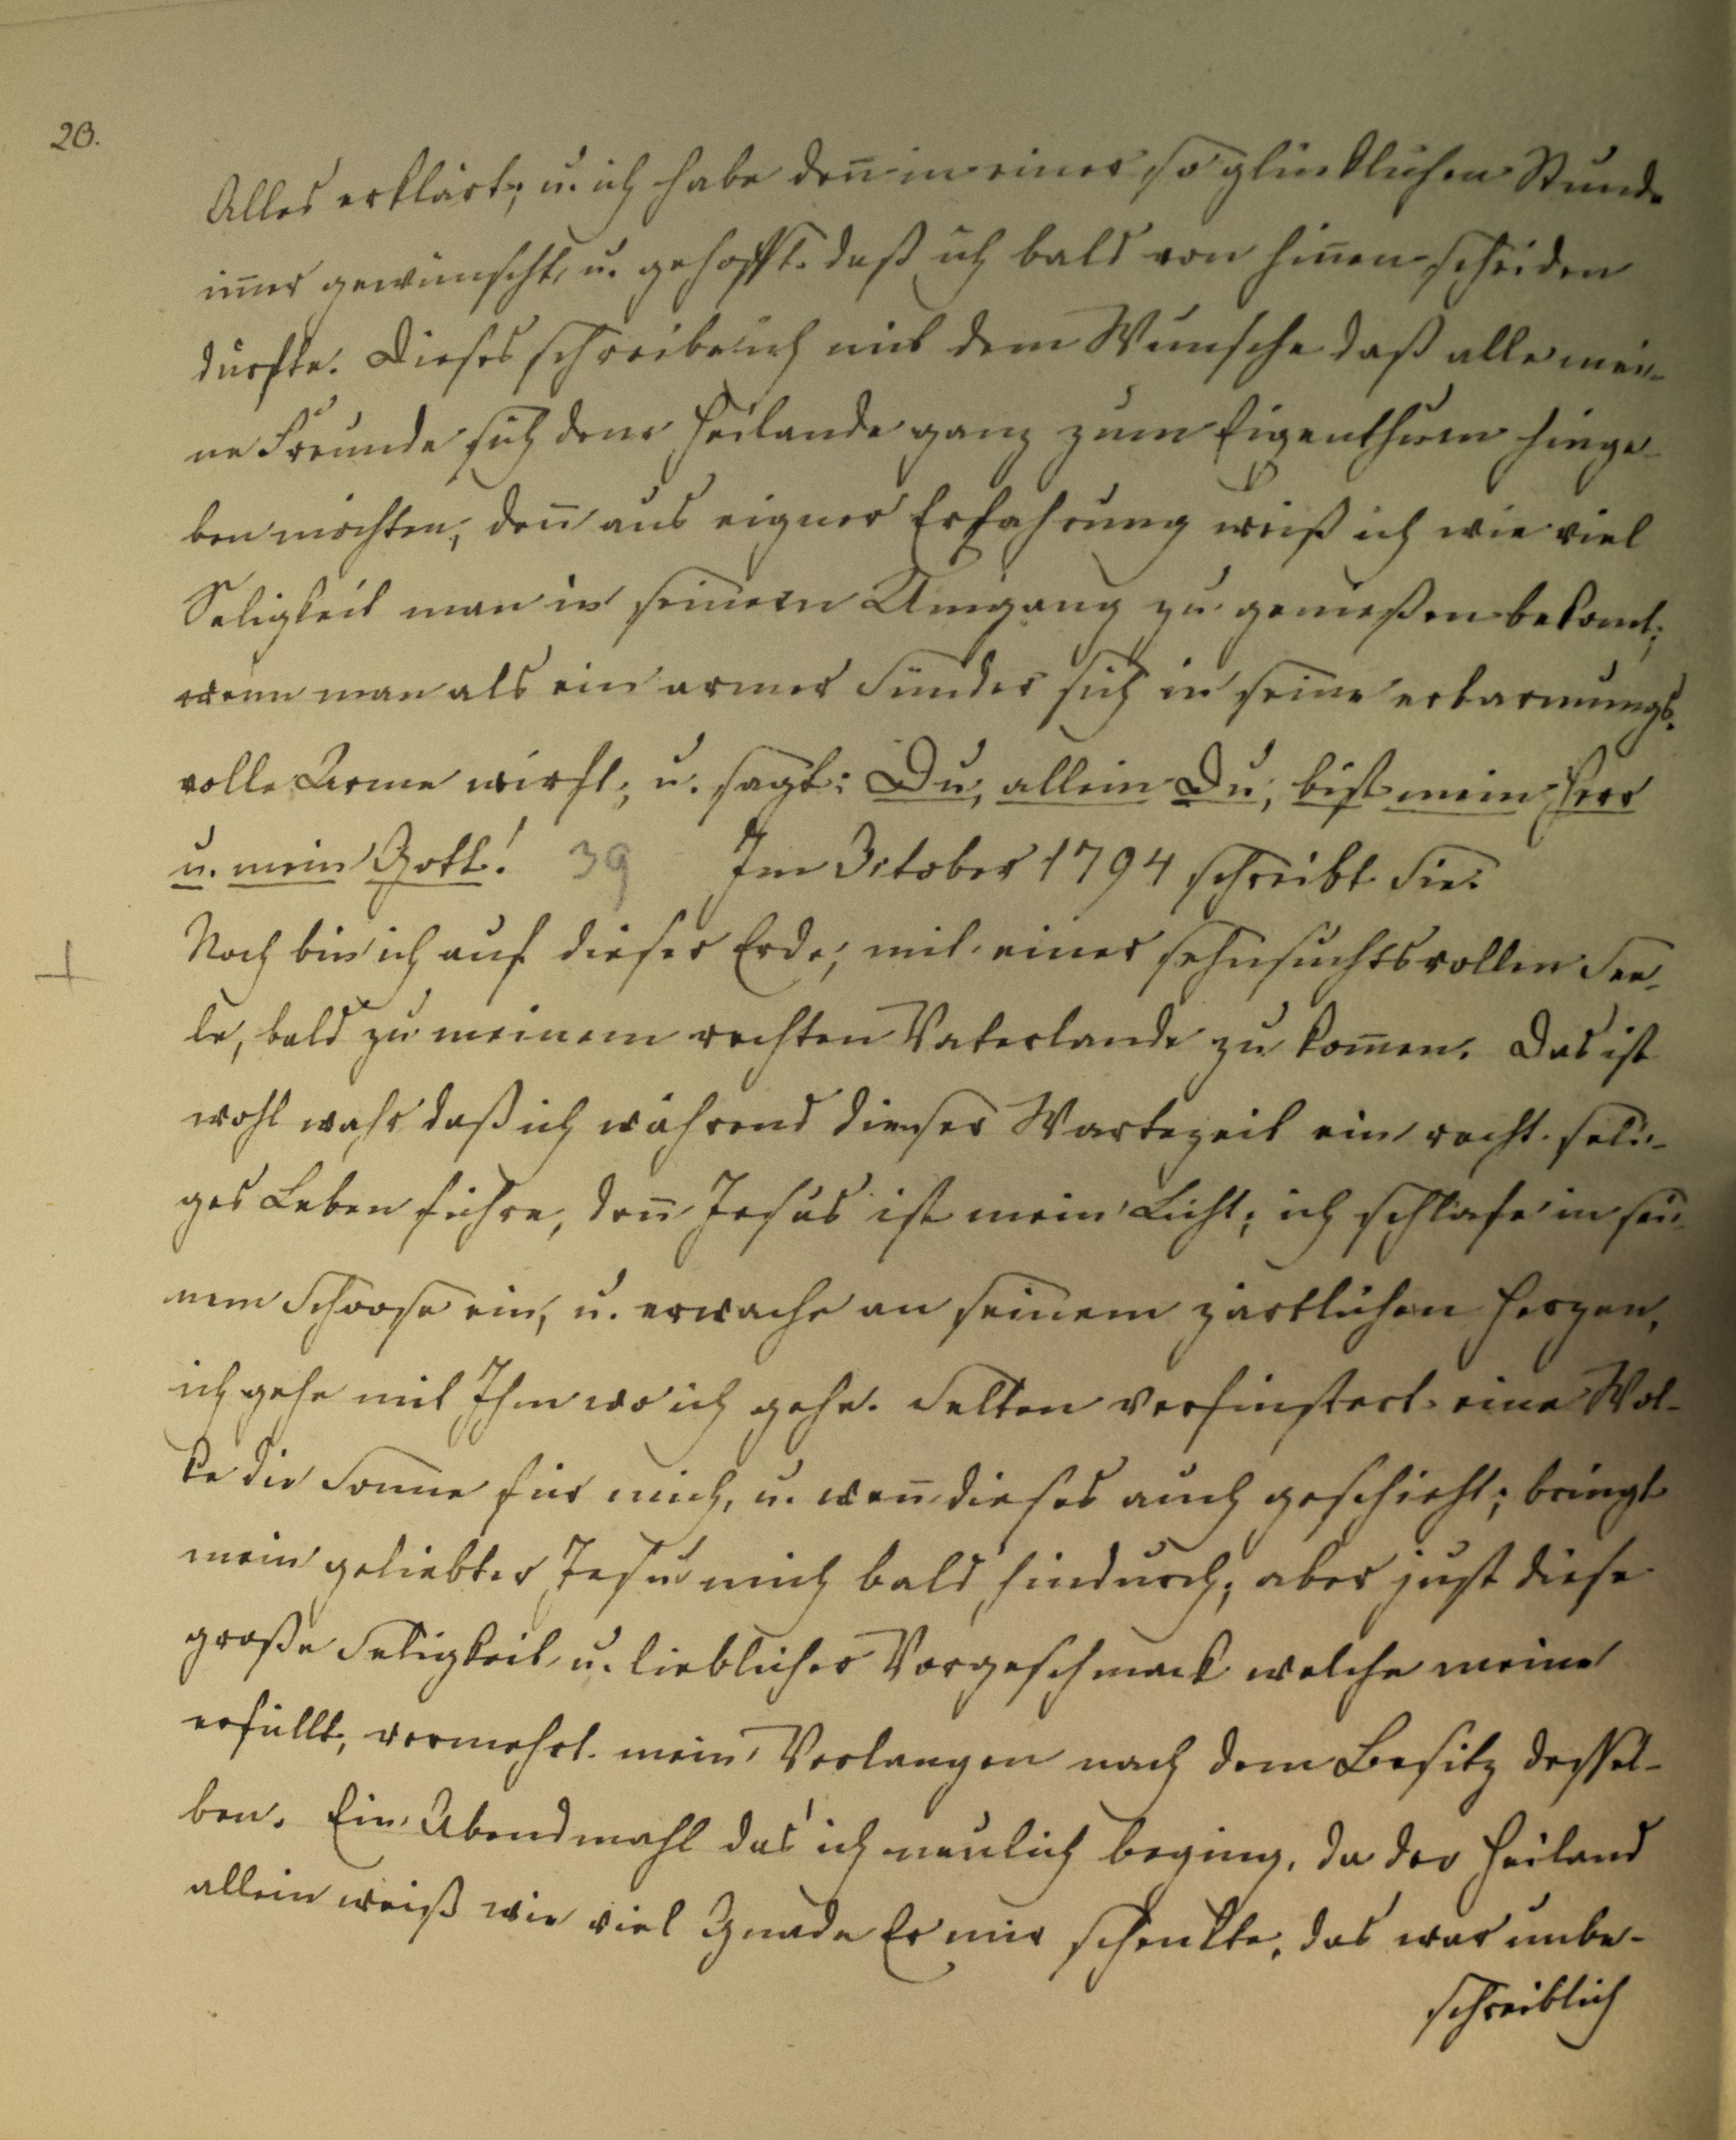 20.
Alles erklärt; u. ich habe deñ in einer so glücklichen Stunde
im̃er gewünscht, u. gehofft. daß ich bald von hin̄en scheiden
dürfte. Dieses schreibe ich mit dem Wunsche daß alle mei-
ne Freunde sich dem Heilande ganz zum Eigenthum hinge-
ben möchten, deñ aus eigner Erfahrung weiß ich wie viel
Seligkeit man in seinem Umgang zu genießen bekomt;
wenn man als ein armer Sünder sich in seine erbarmungs-
volle Arme wirft; u. sagt: Du, allein Du, bist mein Herr
u. mein Gott! 39 Im October 1794 schreibt Sie:
Noch bin ich auf dieser Erde; mit einer sehnsuchtsvollen See-
le, bald zu meinem rechten Vaterlande zu kom̃en. Das ist
wohl wahr daß ich während dieser Wartezeit ein recht seli-
ges Leben führe, deñ Jesus ist mein Licht; ich schlafe in sei-
nem Schoose ein, u. erwache an seinem zärtlichen Herzen,
ich gehe mit Ihm wo ich gehe. Selten verfinstert eine Wol-
ke die Sonne für mich, u. weñ dieses auch geschieht; bringt
mein geliebter Jesu mich bald hindurch; aber just diese
große Seligkeit u. lieblicher Vorgeschmack welche meine
erfüllt, vermehrt mein Verlangen nach dem Besitz dessel-
ben. Ein Abendmahl das ich neulich beging, da der Heiland
allein weiß wie viel Gnade Er mir schenkte, das war unbe-
schreiblich